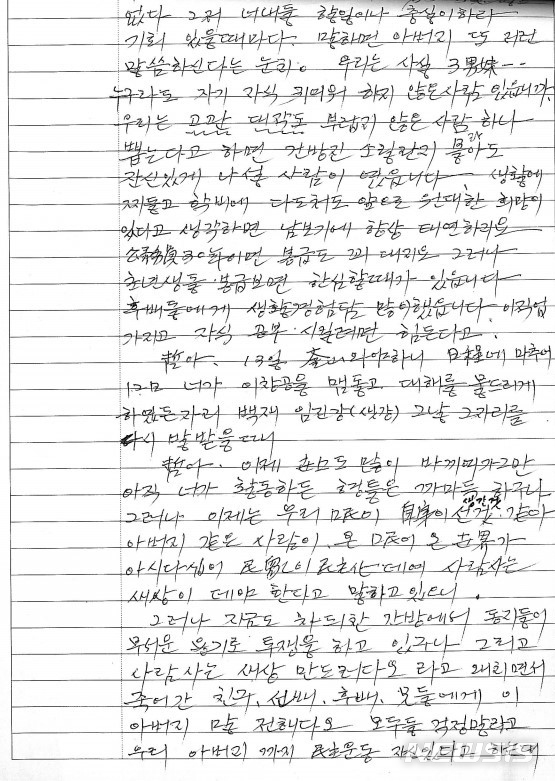 없다 그저 너내들 할일이나 충실이하라
기회 있을때마다. 말하면 아버지 또 저런
말씀하신다는 눈치. 우리는 사실 3男妹--
누구라도 자기 자식 키떠워 하지 않은사람 있읍니까
우리는 부럽지 않은 사람 하나
뽑는다고 하면 건방진 소릴란지 몰라도
잔신있게 나설 사람이 였읍니다 생활에
찌들고 학비에 다도쳐도 앞으로 원대한 희망이
있다고 생각하면 남보기에 항상 태연하지요
公務員 30년이면 봉급도 꾀 대지요 그러나
초년생들 봉급보면 한심할때가 있읍니다
후배들에게 생활경험담 많이했읍니다 이직업
가지고 자식 공부 시킬려면 힘든다고.
哲아. 13일 와야하니 日字에 마추어
12日 너가 이창공을 맴돌고 대해를 물드리게
하였든자리 백재 임진강(샛강) 그날 그자리를
다시 발받을때
哲아. 이제 춘日도 많이 바끼여가그만
아직 너가 활동하든 흔들은 까마득 하구나.
그러나 이제는 우리 国民이 自身이 선것 생각 같아
아버지 같은 사람이. 온 国民이 온 世界가
아시다싶이 民 이 데에 사람사는
새상이 데야 한다고 말하고 있으니.
그러나 지금도 차듸찬 간방에서 동지들이
무서운 용기로 투쟁을 하고 있구나 그리고
사람 사는 새상 만드러다오 라고 왜치면서
죽어간 친구, 선배, 후배, 못들에게 이
아버지 말 전해다오 모두들 걱정말라고
우리 아버지 까지 民主운동 하고있다고 하는대